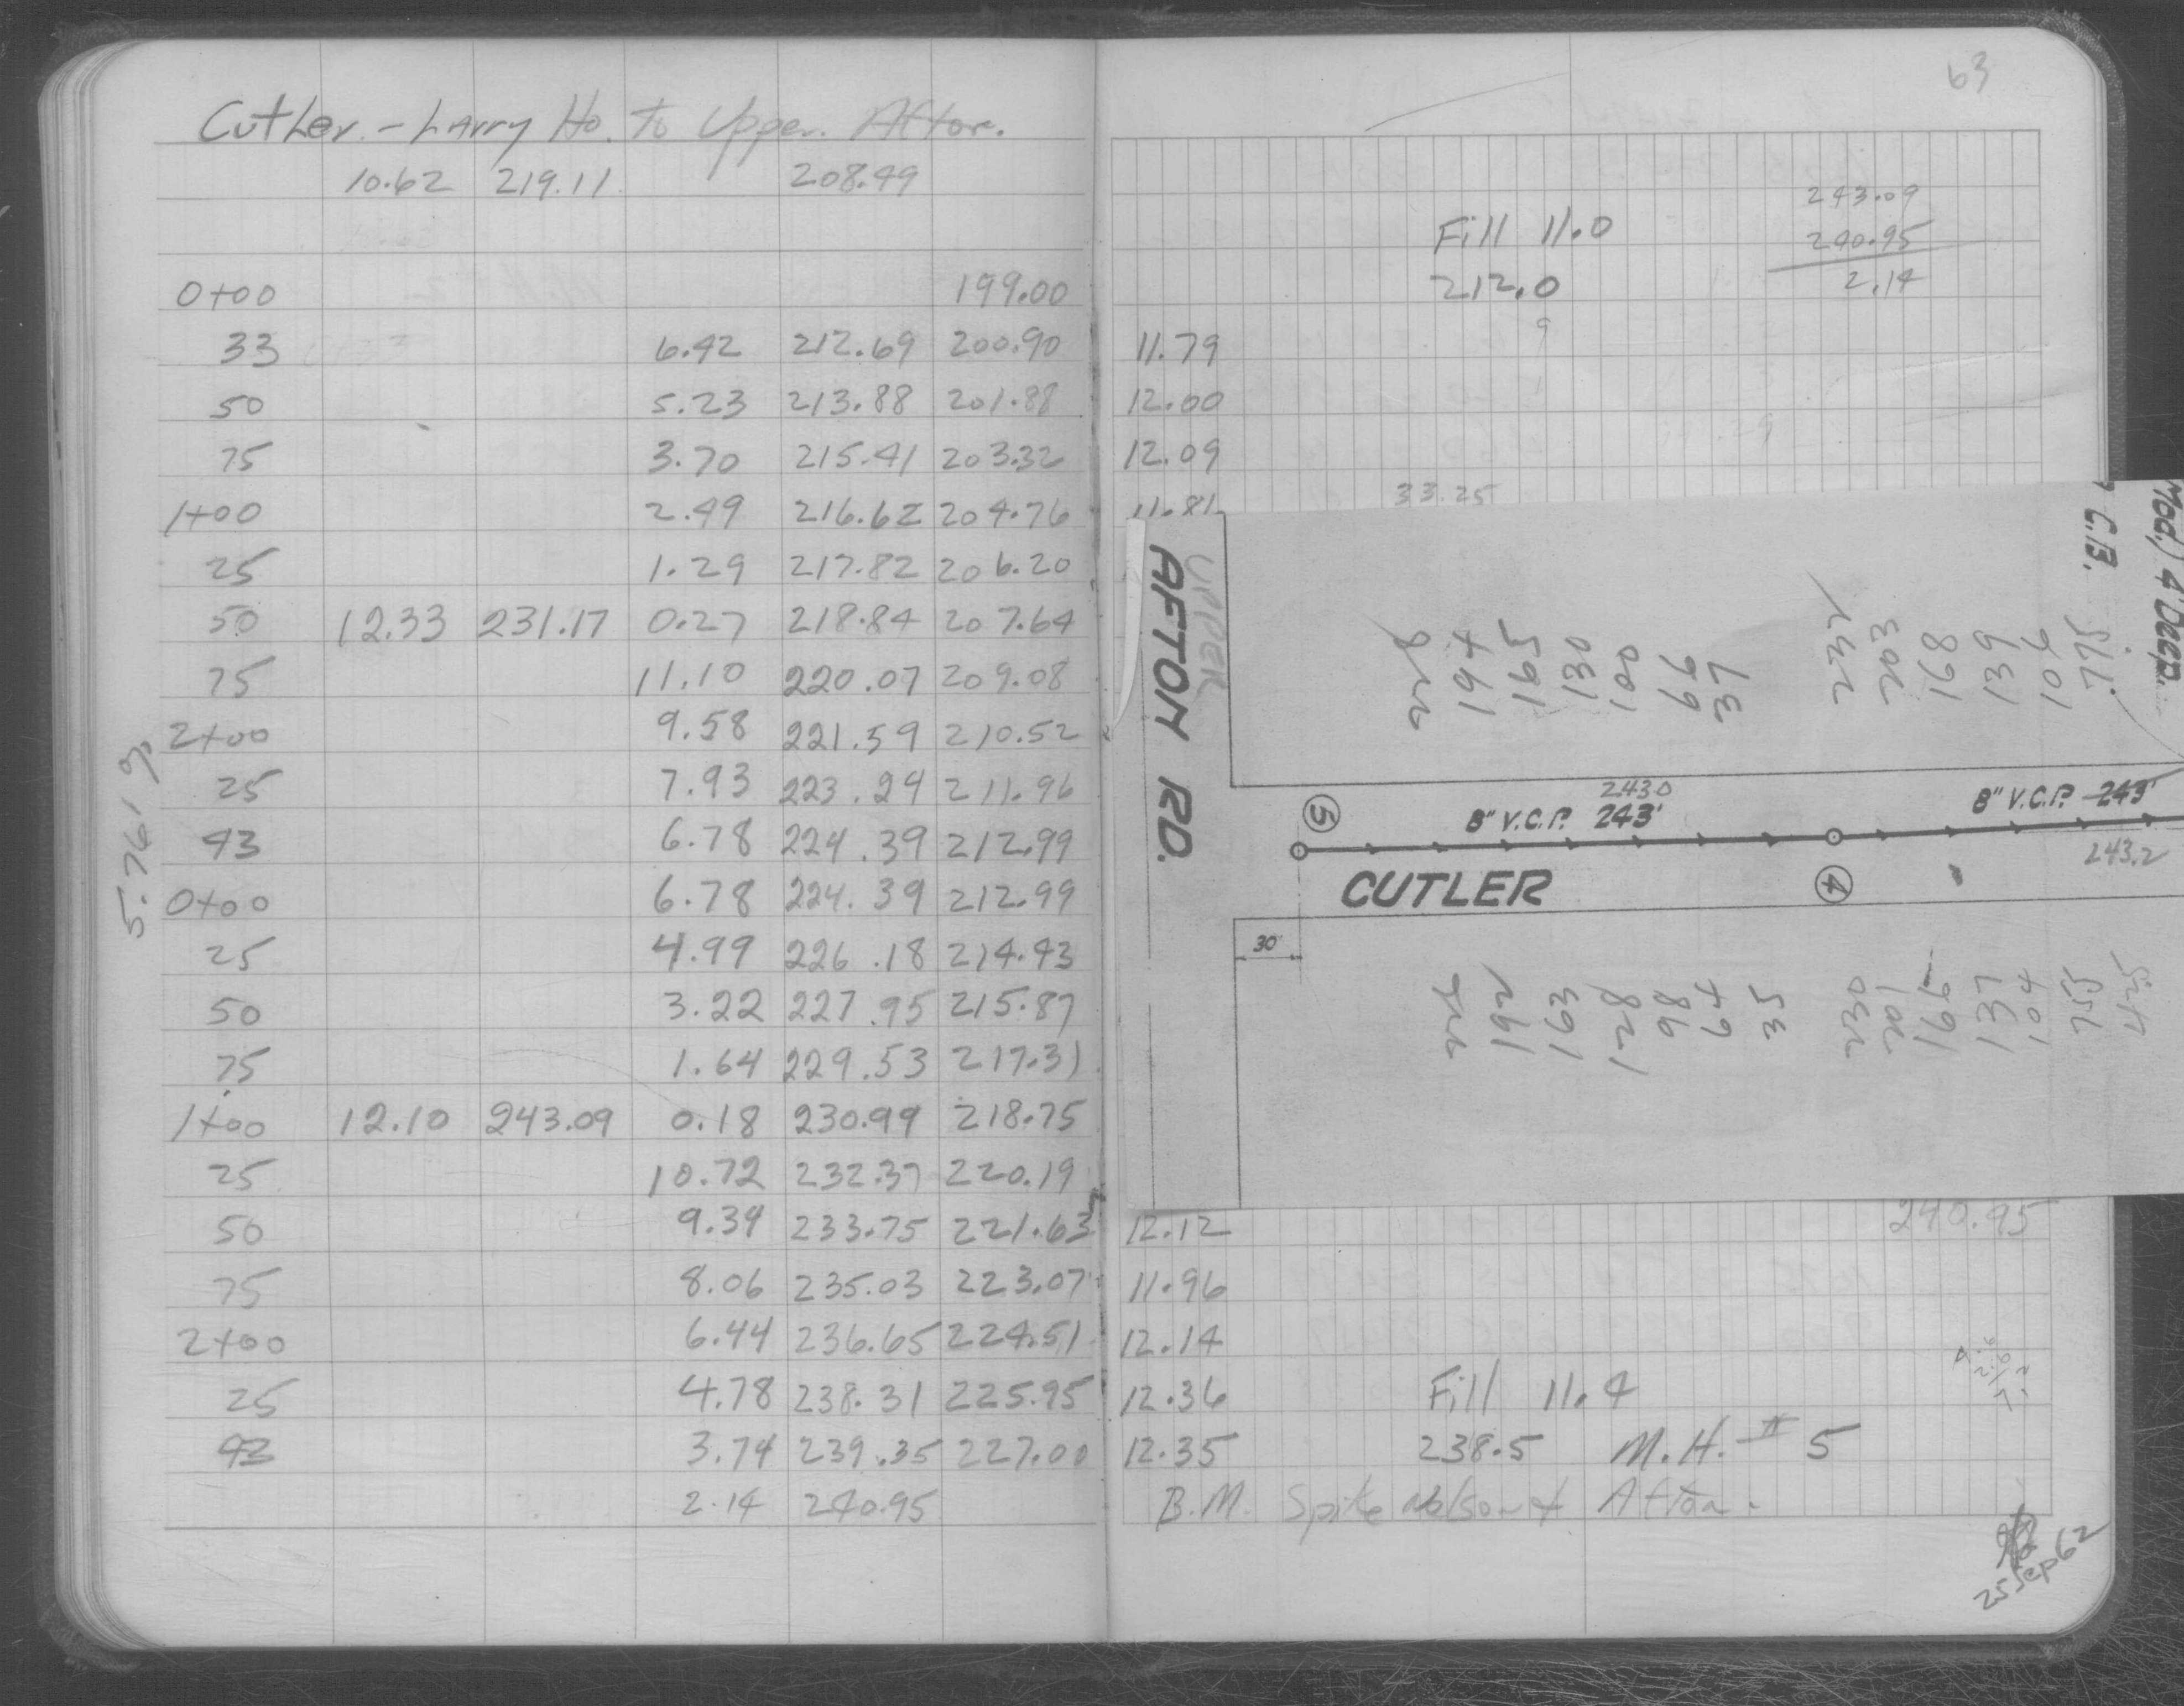 Cutler - Larry Ho. to Upper Afton.
10.62 219.11 208.49
0+00 199.00
33 6.42 212.69 200.90
50 5.23 213.88 201.88
75 3.70 215.41 203.32
1+00 2.49 216.62 204.76
25 1.29 217.82 206.20
50 12.33 231.17 0.27 218.84 207.64
75 11.10 220.07 209.08
2+00 9.58 221.59 210.52
25 7.93 223.24 211.96
43 6.78 224.39 212.99
0+00 6.78 224.39 212.99
25 4.99 226.18 214.43
50 3.22 227.95 215.87
75 1.64 229.53 217.31
1+00 12.10 243.09 0.18 230.99 218.75
25 10.72 232.37 220.19
50 9.34 233.75 221.63
75 8.06 235.03 223.07
2+00 6.44 236.65 224.51
25 4.78 238.31 225.95
43 3.74 239.35 227.00
2.14 240.95
5.761 %
63
243.09
240.95
2.14
Fill 11.0
212.0
9
11.79
12.00
12.09
33.25
11.81
Mod.) 4' Deep.
C.B.
UPPER
AFTON RD.
194
195
130
100
66
37
232
203
168
139
106
243.0
⑤ 8" V.C.P. 243'
8" V.C.P. 243'
243.2
CUTLER ④
30'
192
163
128
98
64
35
230
201
166
137
104
755
425
240.95
12.12
11.96
12.14
12.36 Fill 11.4
12.35 238.5 M.H. # 5
B.M. Spike Nelson + Afton.
25 Sep 62